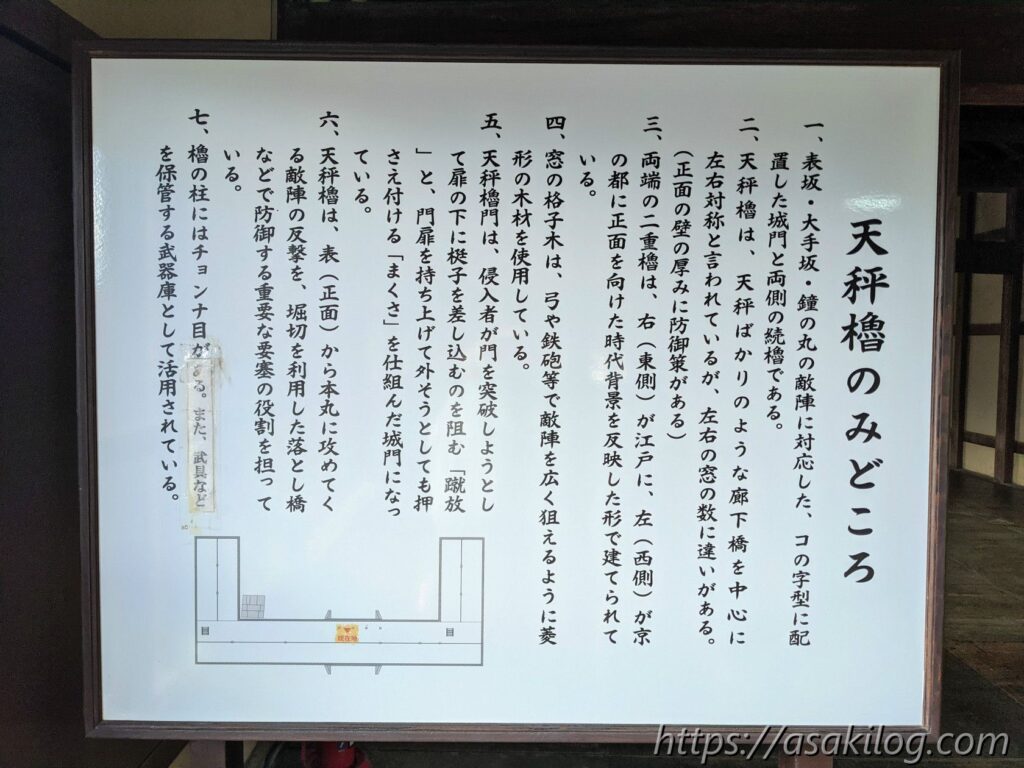 天秤櫓のみどころ
一、表坂・大手坂・鐘の丸の敵陣に対応した、コの字型に配
置した城門と両側の続櫓である。
二、天秤櫓は、天秤ばかりのような廊下橋を中心に
左右対称と言われているが、左右の窓の数に違いがある。
(正面の壁の厚みに防御策がある)
三、両端の二重櫓は、右(東側)が江戸に、左(西側)が京
の都に正面を向けた時代背景を反映した形で建てられて
いる。
四、窓の格子木は、弓や鉄砲等で敵陣を広く狙えるように菱
形の木材を使用している。
五、天秤櫓門は、侵入者が門を突破しようとし
て扉の下に梃子を差し込むのを阻む「蹴放
」と、門扉を持ち上げて外そうとしても押
さえ付ける「まくさ」を仕組んだ城門になっ
ている。
六、天秤櫓は、表(正面)から本丸に攻めてく
る敵陣の反撃を、堀切を利用した落とし橋
などで防御する重要な要塞の役割を担って
いる。
七、櫓の柱にはチョンナ目がある。また、武具など
を保管する武器庫として活用されている。
現在地
https://asakilog.com